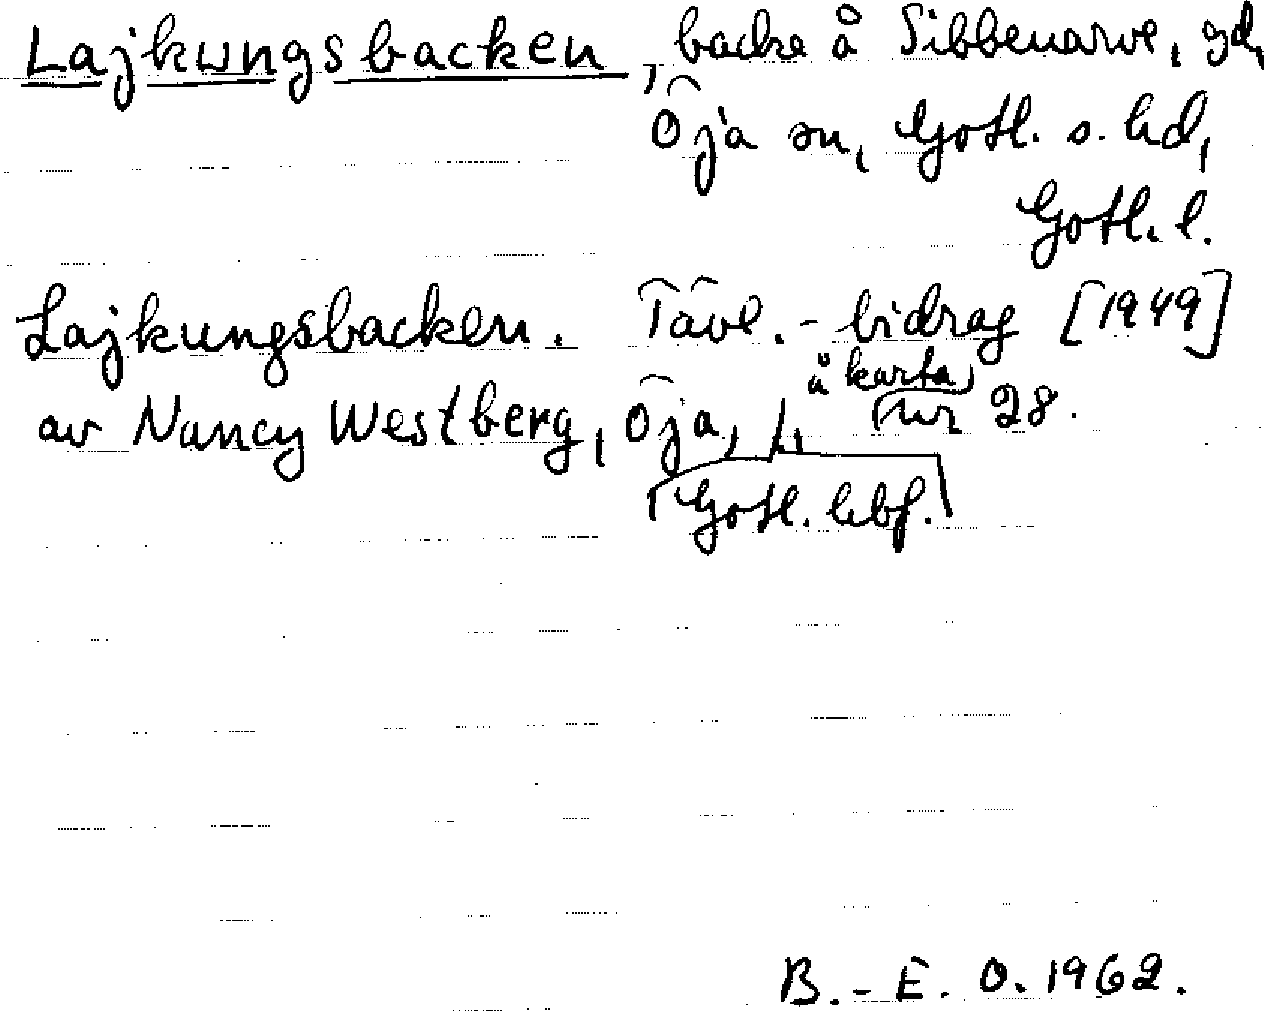 Lajkungsbacken, backe å Sibbenarve, gd,
Öja sn, Gotl. s. hd,
Gotl. l.
Lajkungsbacken. Tävl.-bidrag [1949]
å karta
av Nancy Westberg, Öja, i, nr 28.
Gotl. hbf.
B.-E. O. 1962.